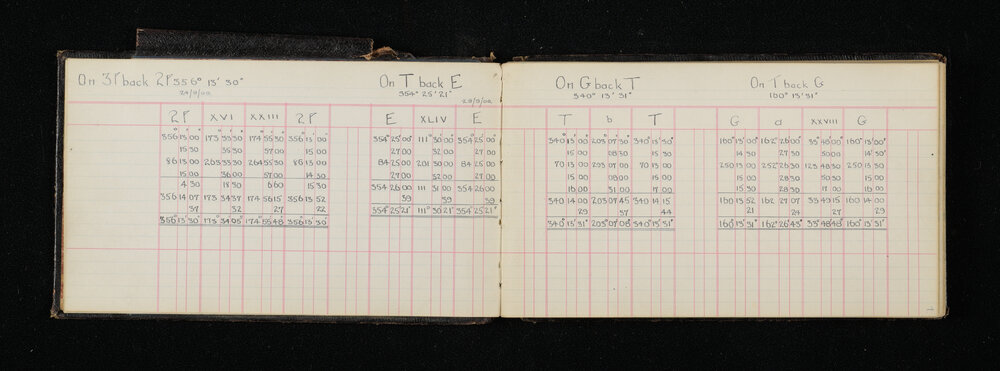 On 3P back 2P 356° 13' 30"
29/9/02
2P XVI XXIII 2P
356°13'00" 173°33'30" 174°55'30" 356°13'00"
15 30 35 30 57 00 15 00
86 13 00 263 33 30 264 55 30 86 13 00
15 00 36 00 57 00 14 30
4 30 18 30 15 30
356 14 07 173 34 37 174 56 15 356 13 52
37 32 27 22
356°13'30" 173°34'05" 174°55'48" 356°13'30"
On T back E
354° 25' 21"
29/9/02
E XLIV E
354°25'00" 111°30'00" 354°25'00"
27 00 32 00 27 00
84 25 00 201 30 00 84 25 00
27 00 32 00 27 00
354 26 00 111 31 00 354 26 00
39 39 39
354°25'21" 111°30'21" 354°25'21"
On G back T
340° 13' 31"
T b T
340°13'00" 203°07'30" 340°13'30"
15 00 08 30 15 30
70 13 00 293 07 00 70 13 00
15 00 08 00 15 30
16 00 31 00 17 00
340 14 00 203 07 45 340 14 15
29 37 44
340°13'31" 203°07'08" 340°13'31"
On T back G
160° 13' 31"
G d XXVIII G
160°13'00" 162°26'00" 33°48'00" 160°13'00"
14 30 27 30 50 00 14 30
250 13 00 252 26 30 123 48 30 250 13 30
15 00 28 30 50 30 15 00
15 30 28 30 17 00 16 00
160 13 52 162 27 07 33 49 15 160 14 00
21 24 27 29
160°13'31" 162°26'43" 33°48'48" 160°13'31"